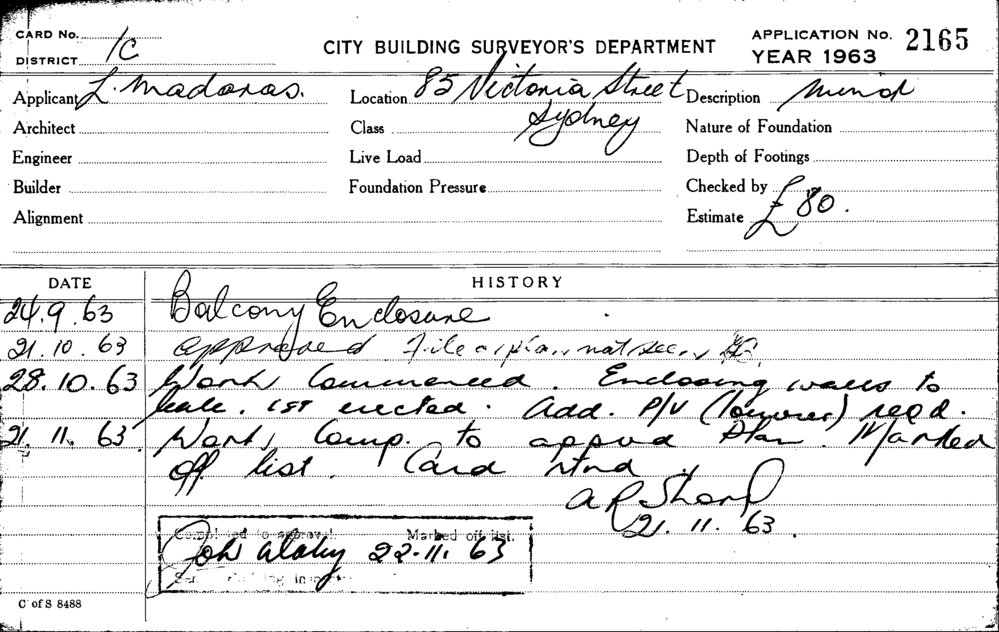 CARD No.
DISTRICT 1C
CITY BUILDING SURVEYOR'S DEPARTMENT
APPLICATION No. 2165
YEAR 1963
Applicant L. Madaras.
Location 85 Victoria Street
Sydney
Description
Architect
Class
Nature of Foundation
Engineer
Live Load
Depth of Footings
Builder
Foundation Pressure
Checked by
Alignment
Estimate £80.
DATE HISTORY
24.9.63 Balcony Enclosure
21.10.63 approved File & plan not seen
28.10.63 Work Commenced. Enclosing walls to
balc. 1st erected. Add. P/V (louvres) reqd.
21.11.63 Work Comp. to apprvd Plan. Marked
off list. Card rtnd.
A R Sharp
21.11.63.
Completed to approval. Marked off list.
22.11.63
C of S 8488